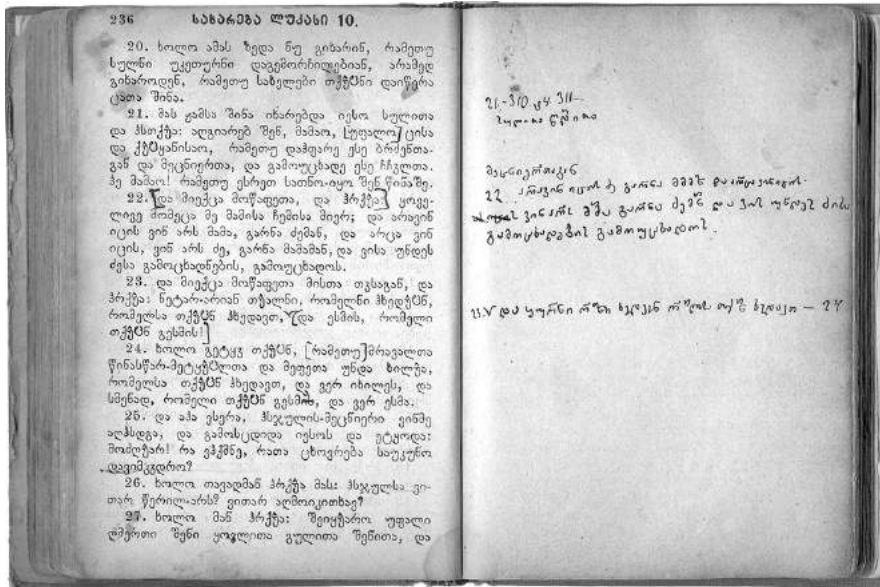 236 ᲡᲐᲮᲐᲠᲔᲑᲐ ᲚᲣᲙᲐᲡᲘ 10.
20. ხოლო ამას ზედა ნუ გიხარინ, რამეთუ
სულნი უკეთურნი დაგემორჩილებიან, არამედ
გიხაროდენ, რამეთუ სახელები თქუენი დაიწერა
ცათა შინა.
21. მას ჟამსა შინა იხარებდა იესო სულითა
და ჰსთქუა: აღგიარებ შენ, მამაო, [უფალო] ცისა
და ქუეყანისაო, რამეთუ დაჰფარე ესე ბრძენთა-
გან და მეცნიერთა, და გამოუცხადე ესე ჩჩვლთა.
ჰე მამაო! რამეთუ ესრეთ სათნო-იყო შენ წინაშე.
22. [და მიექცა მოწაფეთა, და ჰრქუა:] ყოვე-
ლივე მომეცა მე მამისა ჩემისა მიერ; და არავინ
იცის ვინ არს მამა, გარნა ძემან, და არცა ვინ
იცის, ვინ არს ძე, გარნა მამამან, და ვისა უნდეს
ძესა გამოცხადნების, გამოუცხადოს.
23. და მიექცა მოწაფეთა მისთა თჳსაგან, და
ჰრქუა: ნეტარ-არიან თუალნი, რომელნი ჰხედვენ,
რომელსა თქუენ ჰხედავთ, [და ესმის, რომელი
თქუენ გესმის!]
24. ხოლო გეტყჳ თქუენ, [რამეთუ] მრავალთა
წინასწარ-მეტყუელთა და მეფეთა უნდა ხილვა,
რომელსა თქუენ ჰხედავთ, და ვერ იხილეს, და
სმენად, რომელი თქუენ გესმის, და ვერ ესმა.
25. და აჰა ესერა, ჰსჯულის-მეცნიერი ვინმე
აღჰსდგა, და გამოსცდიდა იესოს და ეტყოდა:
მოძღვარ! რა ვჰქმნე, რათა ცხოვრება საუკუნო
დავიმკჳდრო?
26. ხოლო თავადმან ჰრქუა მას: ჰსჯულსა ვი-
თარ წერილ-არს? ვითარ აღმოიკითხავ?
27. ხოლო მან ჰრქუა: შეიყვარო უფალი
ღმერთი შენი ყოვლითა გულითა შენითა, და
21.-310. 311-
22. არავინ იცის ძე გარნა
ვინ არს მამა გარნა ძემან და ვის უნდეს ძესა
გამოუცხადოს.
23. და — 24